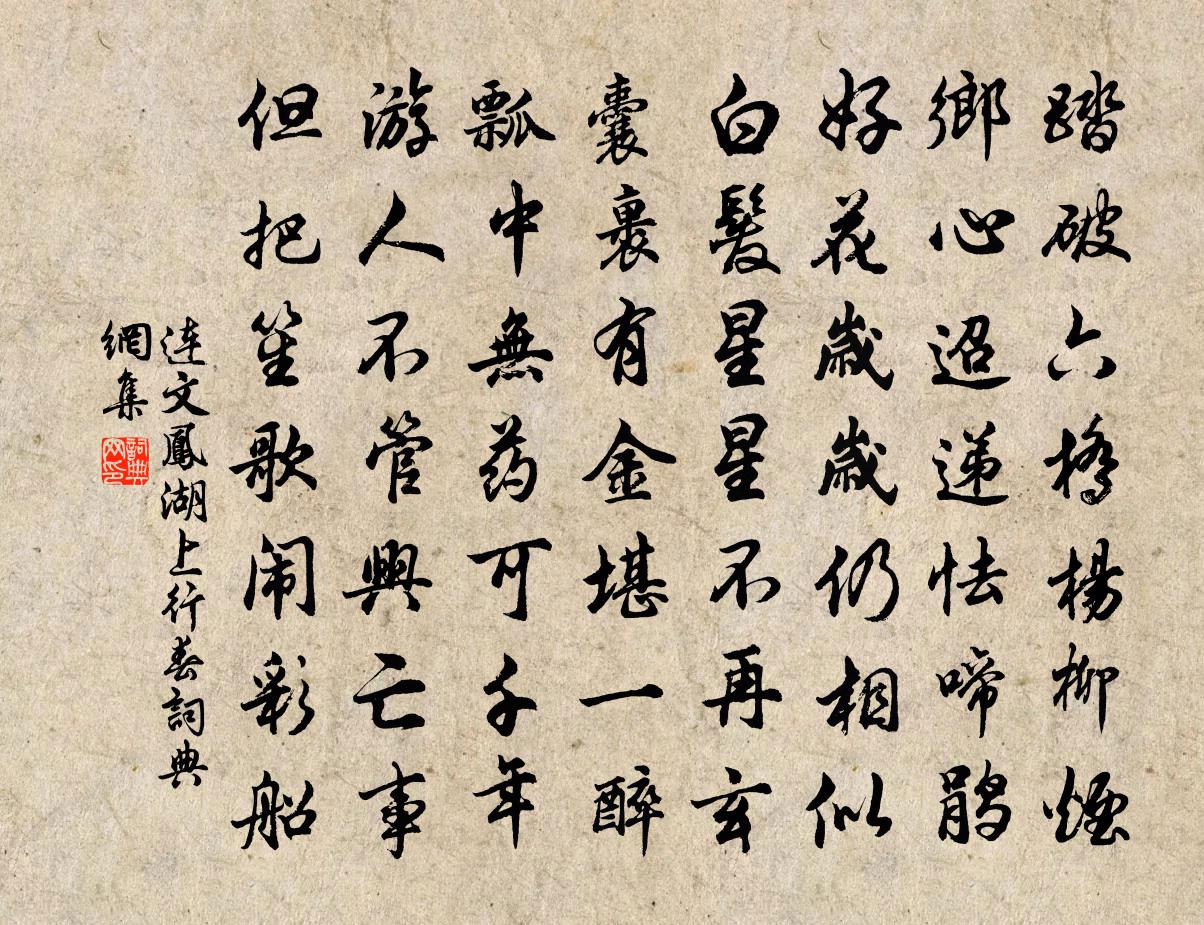 踏破六橋楊柳煙
鄉心迢递怯啼鹃
好花歲歲仍相似
白髮星星不再玄
囊裹有金堪一醉
瓢中無药可千年
游人不管興亡事
但把笙歌闹彩船
連文鳳湖上行春詞典
網集
詞典
网印